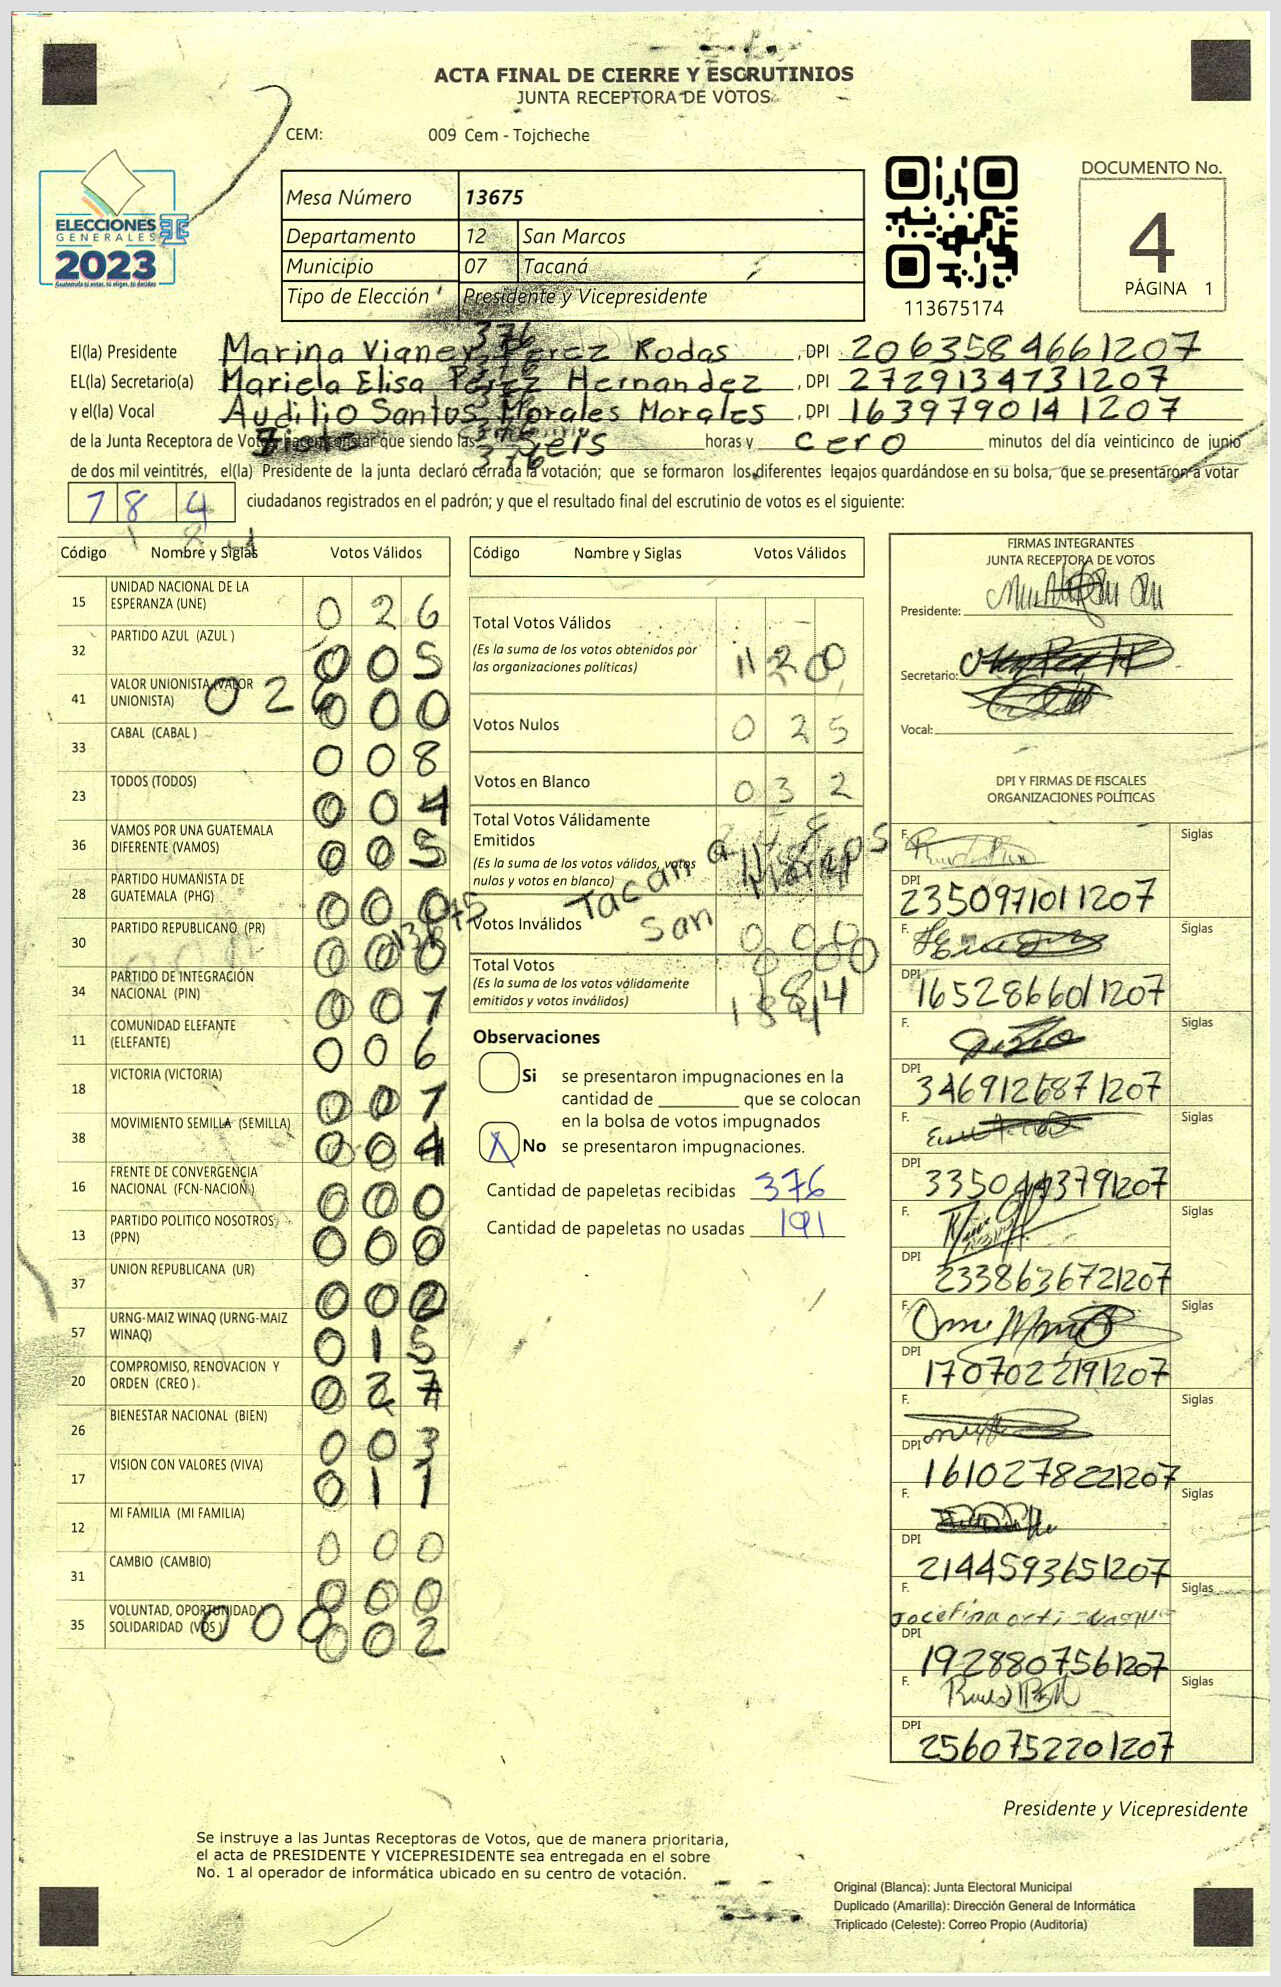 ACTA FINAL DE CIERRE Y ESCRUTINIOS
JUNTA RECEPTORA DE VOTOS
CEM: 009 Cem - Tojcheche
ELECCIONES
GENERALES
2023
Guatemala si votas, tú eliges, tú decides
Mesa Número 13675
Departamento 12 San Marcos
Municipio 07 Tacaná
Tipo de Elección Presidente y Vicepresidente
113675174
DOCUMENTO No.
4
PÁGINA 1
El(la) Presidente Marina Vianey Perez Rodas , DPI 2063584661207
EL(la) Secretario(a) Mariela Elisa Pérez Hernandez , DPI 2729134731207
y el(la) Vocal Audilio Santos Morales Morales , DPI 1639790141207
376
376
376
376
de la Junta Receptora de Votos, hacen constar que siendo las seis horas y cero minutos del día veinticinco de junio
de dos mil veintitrés, el(la) Presidente de la junta declaró cerrada la votación; que se formaron los diferentes legajos guardándose en su bolsa, que se presentaron a votar
184 ciudadanos registrados en el padrón; y que el resultado final del escrutinio de votos es el siguiente:
Código Nombre y Siglas Votos Válidos
15 UNIDAD NACIONAL DE LA ESPERANZA (UNE) 0 2 6
32 PARTIDO AZUL (AZUL ) 0 0 5
41 VALOR UNIONISTA (VALOR UNIONISTA) 0 0 0
026
33 CABAL (CABAL ) 0 0 8
23 TODOS (TODOS) 0 0 4
36 VAMOS POR UNA GUATEMALA DIFERENTE (VAMOS) 0 0 5
28 PARTIDO HUMANISTA DE GUATEMALA (PHG) 0 0 0
30 PARTIDO REPUBLICANO (PR) 0 0 0
13675
34 PARTIDO DE INTEGRACIÓN NACIONAL (PIN) 0 0 7
11 COMUNIDAD ELEFANTE (ELEFANTE) 0 0 6
18 VICTORIA (VICTORIA) 0 0 7
38 MOVIMIENTO SEMILLA (SEMILLA) 0 0 4
16 FRENTE DE CONVERGENCIA NACIONAL (FCN-NACION ) 0 0 0
13 PARTIDO POLITICO NOSOTROS (PPN) 0 0 0
37 UNION REPUBLICANA (UR) 0 0 2
57 URNG-MAIZ WINAQ (URNG-MAIZ WINAQ) 0 1 5
20 COMPROMISO, RENOVACION Y ORDEN (CREO ) 0 2 7
26 BIENESTAR NACIONAL (BIEN) 0 0 3
17 VISION CON VALORES (VIVA) 0 1 1
12 MI FAMILIA (MI FAMILIA) 0 0 0
31 CAMBIO (CAMBIO) 0 0 0
35 VOLUNTAD, OPORTUNIDAD Y SOLIDARIDAD (VOS ) 0 0 2
000
Código Nombre y Siglas Votos Válidos
Total Votos Válidos
(Es la suma de los votos obtenidos por
las organizaciones políticas) 1 2 0
Votos Nulos 0 2 5
Votos en Blanco 0 3 2
Total Votos Válidamente
Emitidos
(Es la suma de los votos válidos, votos
nulos y votos en blanco)
Tacaná
San Marcos
Votos Inválidos 0 0 0
Total Votos
(Es la suma de los votos válidamente
emitidos y votos inválidos) 1 8 4
Observaciones
Si se presentaron impugnaciones en la
cantidad de ________ que se colocan
en la bolsa de votos impugnados
X No se presentaron impugnaciones.
Cantidad de papeletas recibidas 376
Cantidad de papeletas no usadas 191
FIRMAS INTEGRANTES
JUNTA RECEPTORA DE VOTOS
Presidente:
Secretario:
Vocal:
DPI Y FIRMAS DE FISCALES
ORGANIZACIONES POLÍTICAS
F. Siglas
DPI 2350971011207
F. Siglas
DPI 1652866011207
F. Siglas
DPI 3469126871207
F. Siglas
DPI 3350443791207
F. Siglas
DPI 2338636721207
F. Siglas
DPI 1707022191207
F. Siglas
DPI 1610278221207
F. Siglas
DPI 2144593651207
F. Siglas
DPI 1928807561207
F. Siglas
DPI 2560752201207
Presidente y Vicepresidente
Se instruye a las Juntas Receptoras de Votos, que de manera prioritaria,
el acta de PRESIDENTE Y VICEPRESIDENTE sea entregada en el sobre
No. 1 al operador de informática ubicado en su centro de votación.
Original (Blanca): Junta Electoral Municipal
Duplicado (Amarilla): Dirección General de Informática
Triplicado (Celeste): Correo Propio (Auditoría)